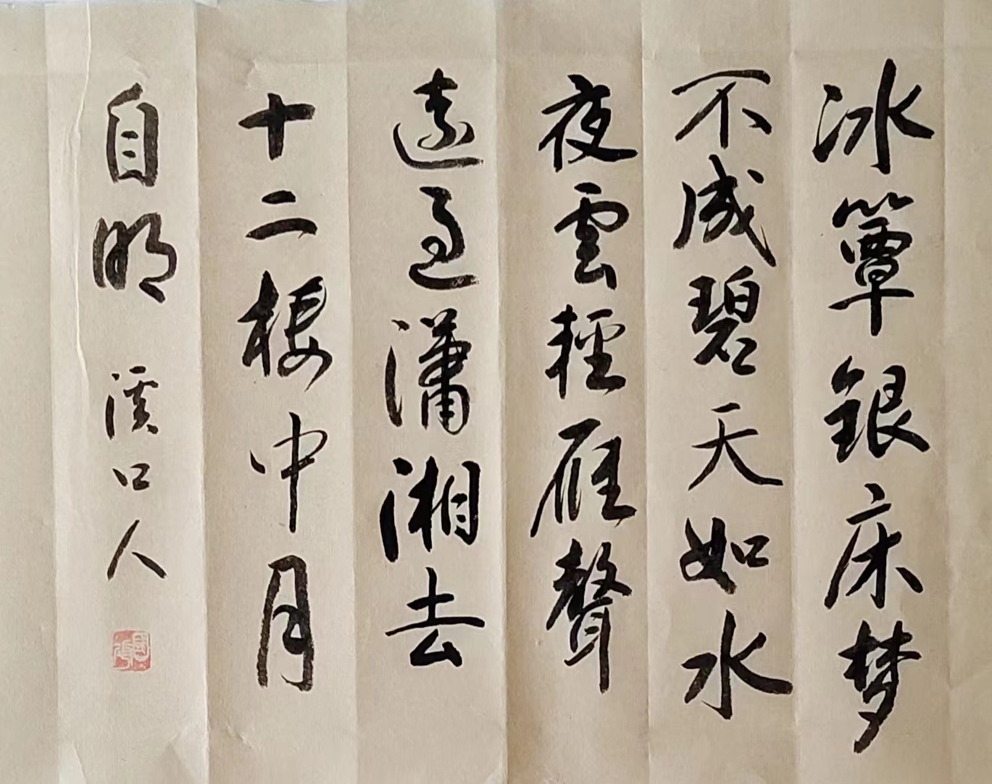 冰簟銀床梦
不成碧天如水
夜雲輕雁聲
遠過瀟湘去
十二楼中月
自明 溪口人